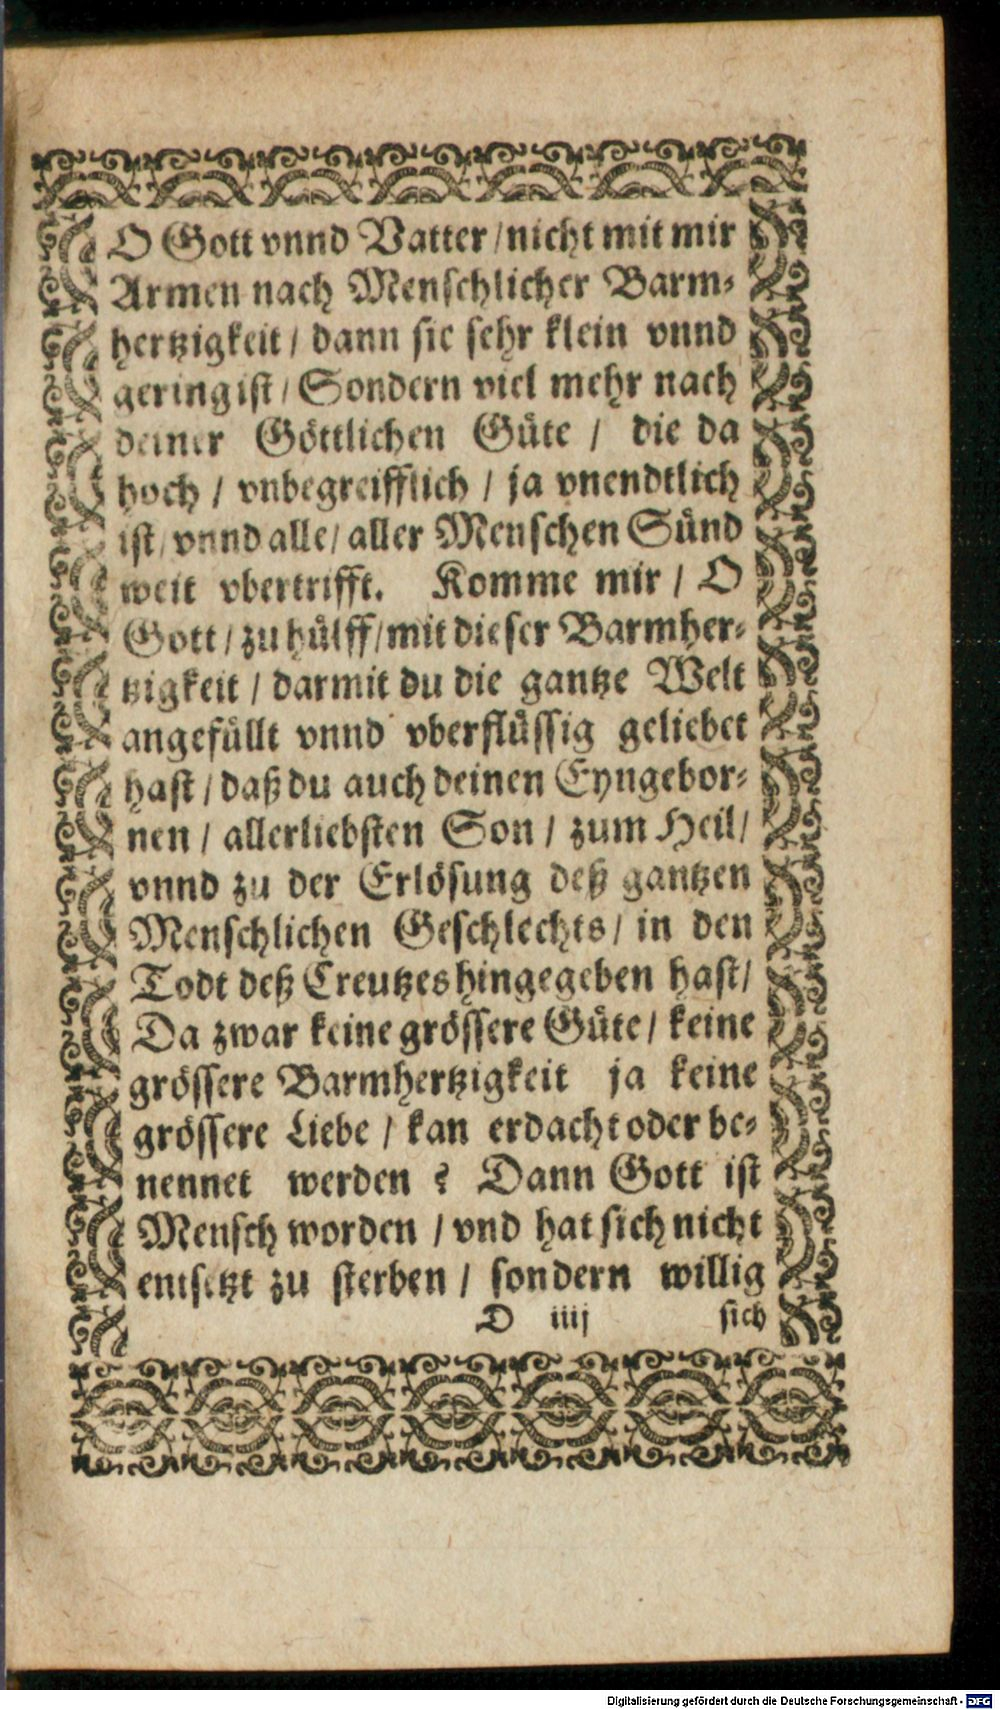 O Gott vnnd Vatter / nicht mit mir
Armen nach Menschlicher Barm-
hertzigkeit / dann sie sehr klein vnnd
gering ist / Sondern viel mehr nach
deiner Göttlichen Güte / die da
hoch / vnbegreifflich / ja vnendtlich
ist / vnnd alle / aller Menschen Sünd
weit vbertrifft. Komme mir / O
Gott / zu hülff / mit dieser Barmher-
tzigkeit / darmit du die gantze Welt
angefüllt vnnd vberflüssig geliebet
hast / daß du auch deinen Eyngebor-
nen / allerliebsten Son / zum Heil /
vnnd zu der Erlösung deß gantzen
Menschlichen Geschlechts / in den
Todt deß Creutzes hingegeben hast /
Da zwar keine grössere Güte / keine
grössere Barmhertzigkeit ja keine
grössere Liebe / kan erdacht oder be-
nennet werden ? Dann Gott ist
Mensch worden / vnd hat sich nicht
entsetzt zu sterben / sondern willig
D iiij sich
Digitalisierung gefördert durch die Deutsche Forschungsgemeinschaft - DFG